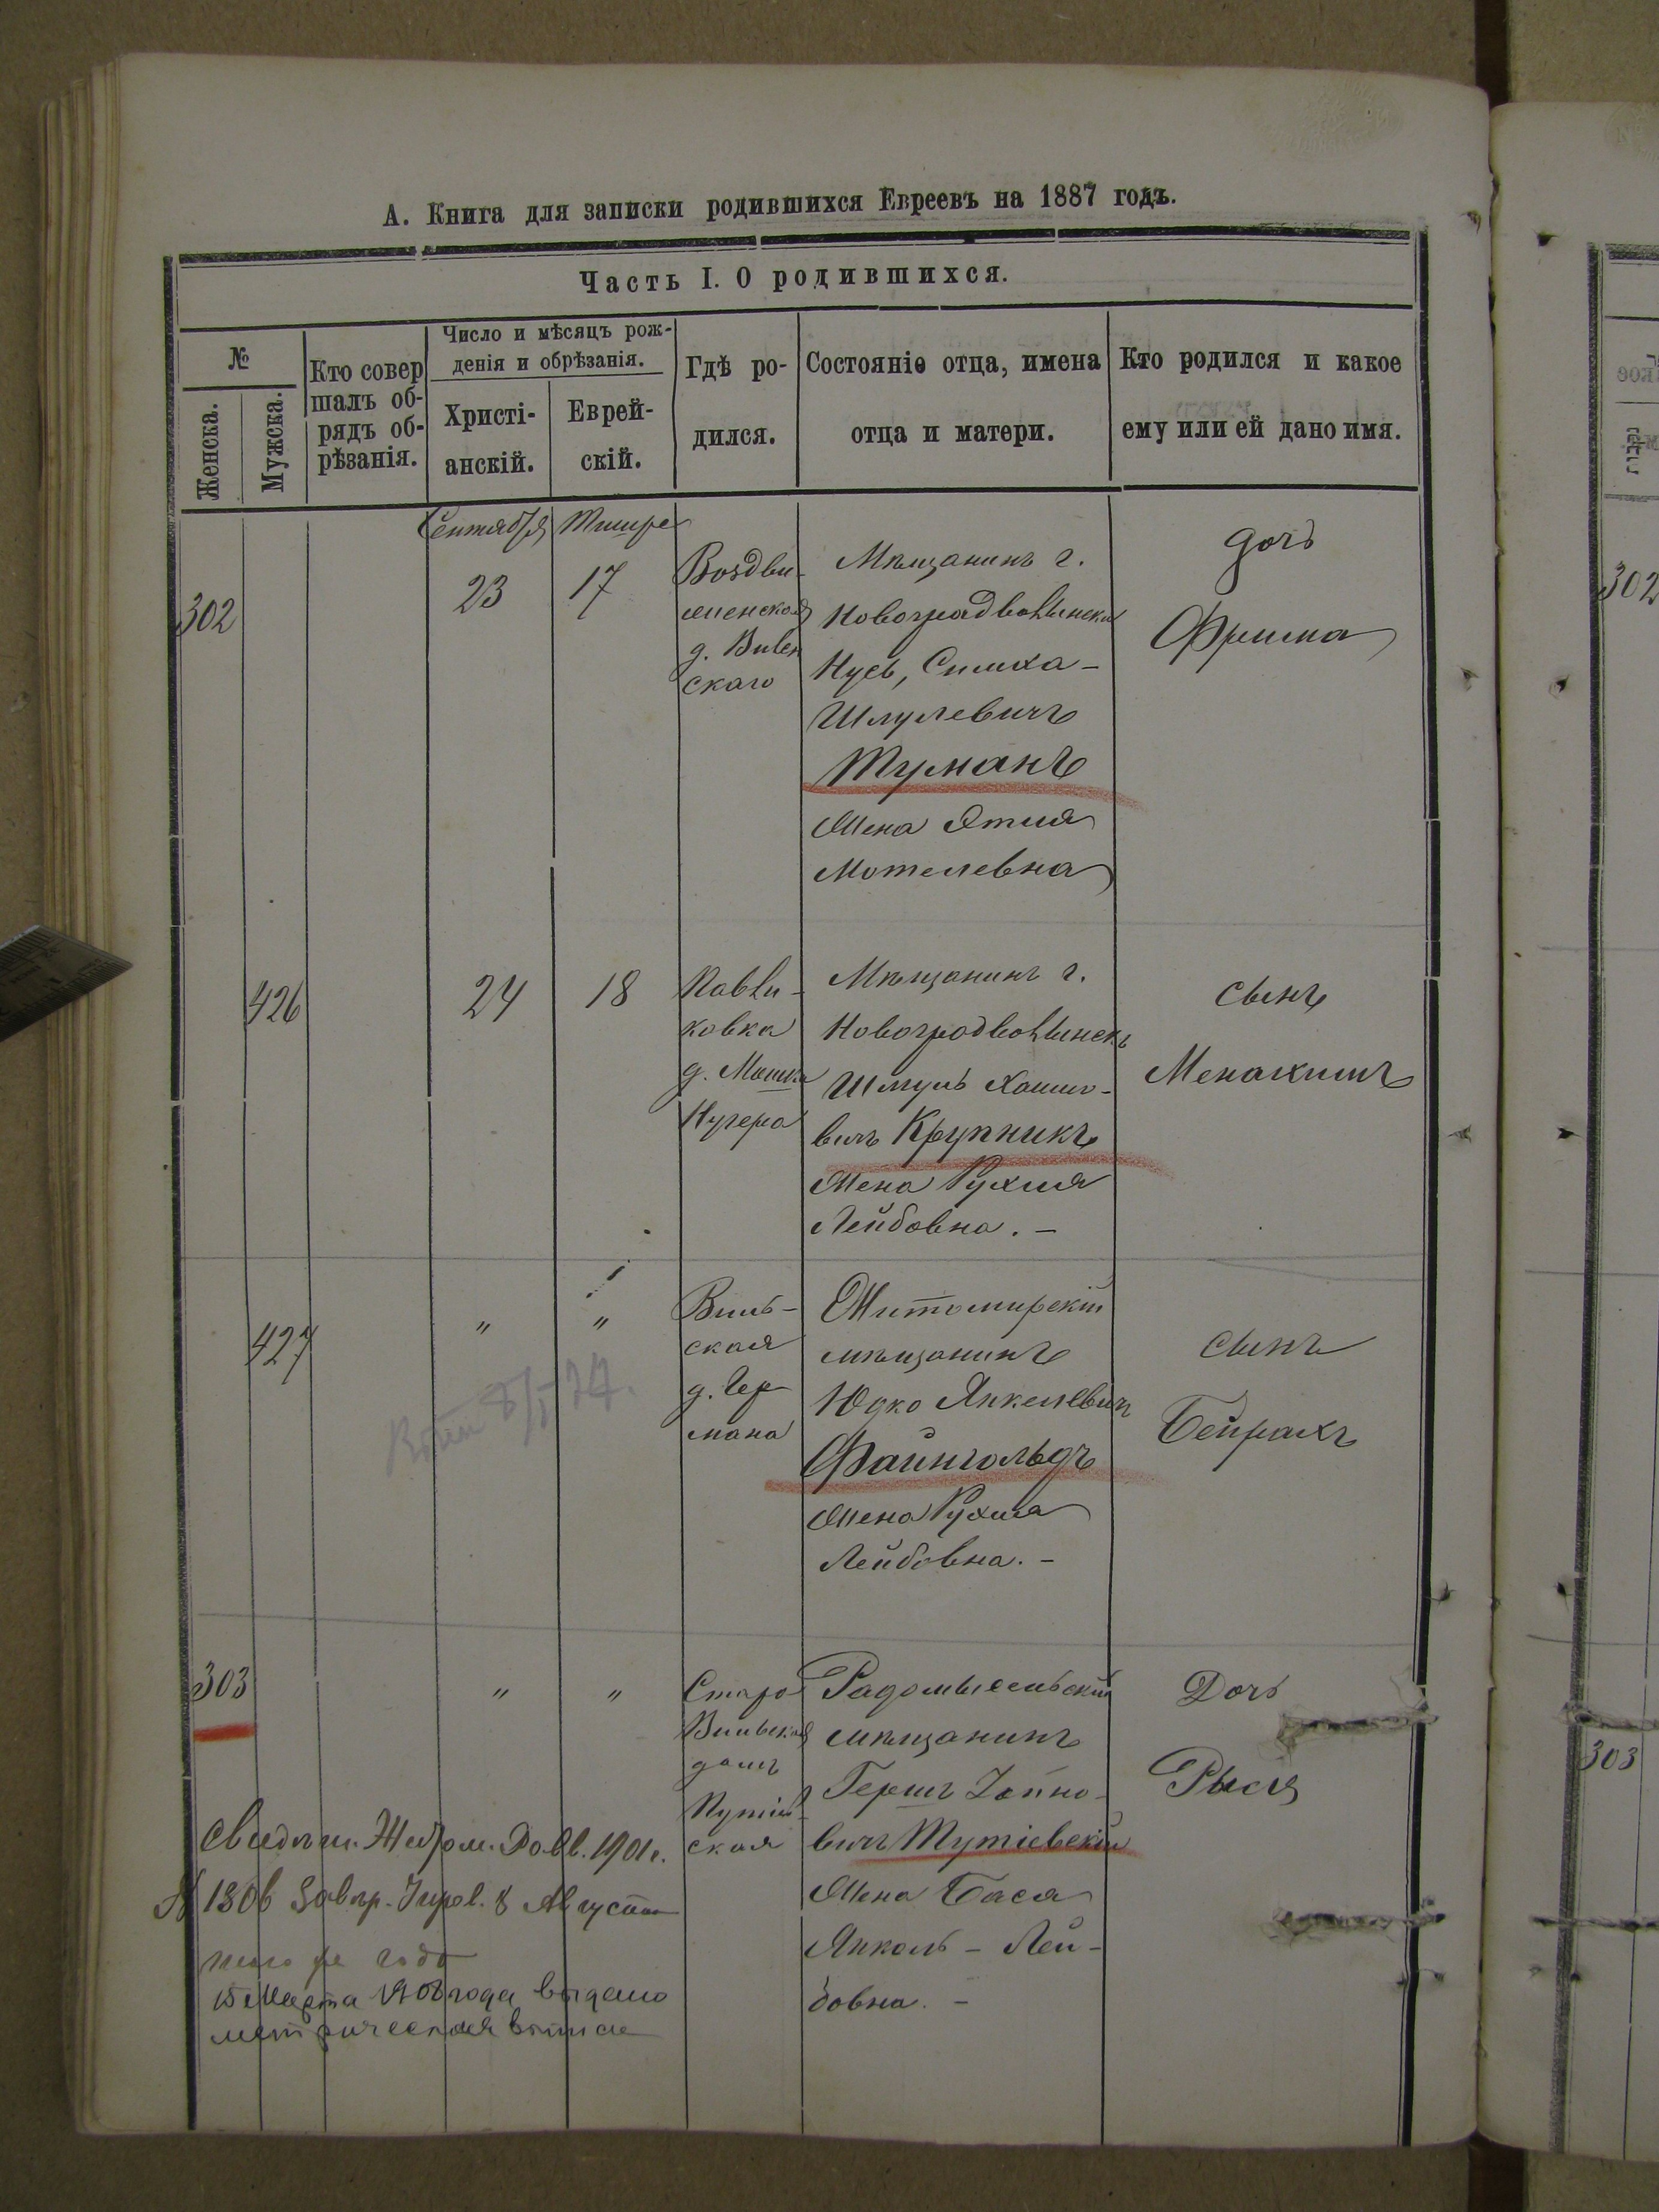 А. Книга для записки родившихся Евреевъ на 1887 годъ.
Часть I. О родившихся.
№
Женска.
Мужска.
Кто совер
шалъ об-
рядъ об-
рѣзанія.
Число и мѣсяцъ рож-
денія и обрѣзанія.
Христі-
анскій.
Еврей-
скій.
Гдѣ ро-
дился.
Состояніе отца, имена
отца и матери.
Кто родился и какое
ему или ей дано имя.
302
Сентября
23
Тишре
17
Воздви-
женская
д.
скаго
Мѣщанинъ г.
Новоградволынска
Нусь, Симха-
Шмулевичъ
Туманъ
Жена
Мотелевна
дочь
Фрима
426
24
18
Павли-
ковка
д. Мошка
Кучера
Мѣщанинъ г.
Новоградволынскъ
Шмуль Хаимо-
вичъ Крупникъ
Жена Рухля
Лейбовна. –
сынъ
Менахимъ
427
"
"
Виль-
ская
д. Гер
мана
Житомирскій
мѣщанинъ
Юдко Янкелевичъ
Файнгольдъ
Жена Рухля
Лейбовна. –
сынъ
Бейрахъ
303
"
"
Старо
Вильская
домъ
ская
Радомысльскій
мѣщанинъ
Гершъ
вичъ Тутіевскій
Жена Бася
Янкель – Лей-
бовна. –
Дочь
Рыся
1901 г.
№ 1306 8 Августа
того же года
15 Марта года выдана
метрическая выпись
302
303